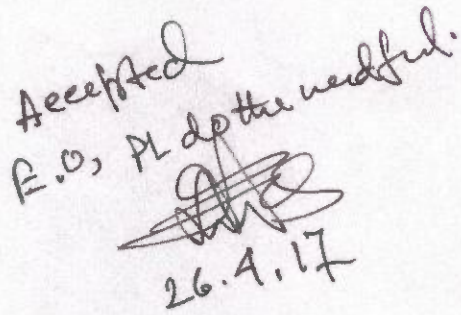 Accepted
E.O, Pl do the needful.
26.4.17